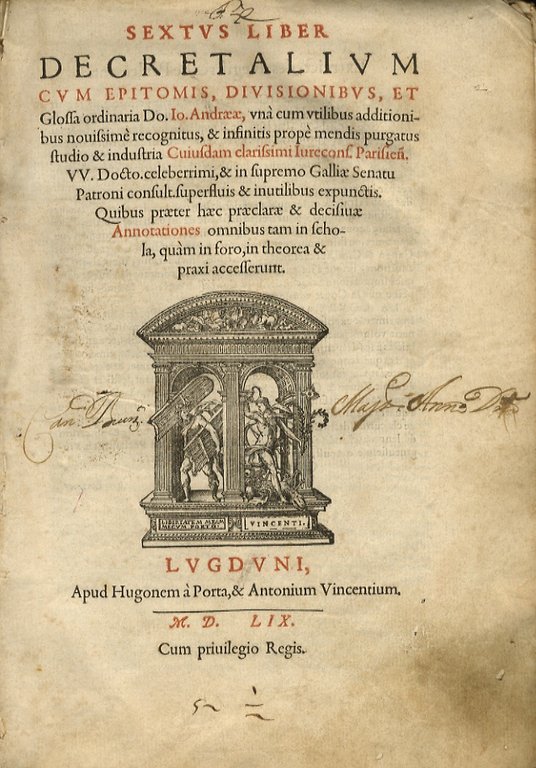 SEXTVS LIBER
DECRETALIVM
CVM EPITOMIS, DIVISIONIBVS, ET
Glossa ordinaria Do. Io. Andreæ, vnà cum vtilibus additioni-
bus nouissimè recognitus, & infinitis propè mendis purgatus
studio & industria Cuiusdam clarissimi Iurecons. Parisień.
VV. Docto. celeberrimi, & in supremo Galliæ Senatu
Patroni consult. superfluis & inutilibus expunctis.
Quibus præter hæc præclaræ & decisiuæ
Annotationes omnibus tam in scho-
la, quàm in foro, in theorea &
praxi accesserunt.
LIBERTATEM MEAM
MECVM PORTO.
VINCENTI.
LVGDVNI,
Apud Hugonem à Porta, & Antonium Vincentium.
M. D. LIX.
Cum priuilegio Regis.